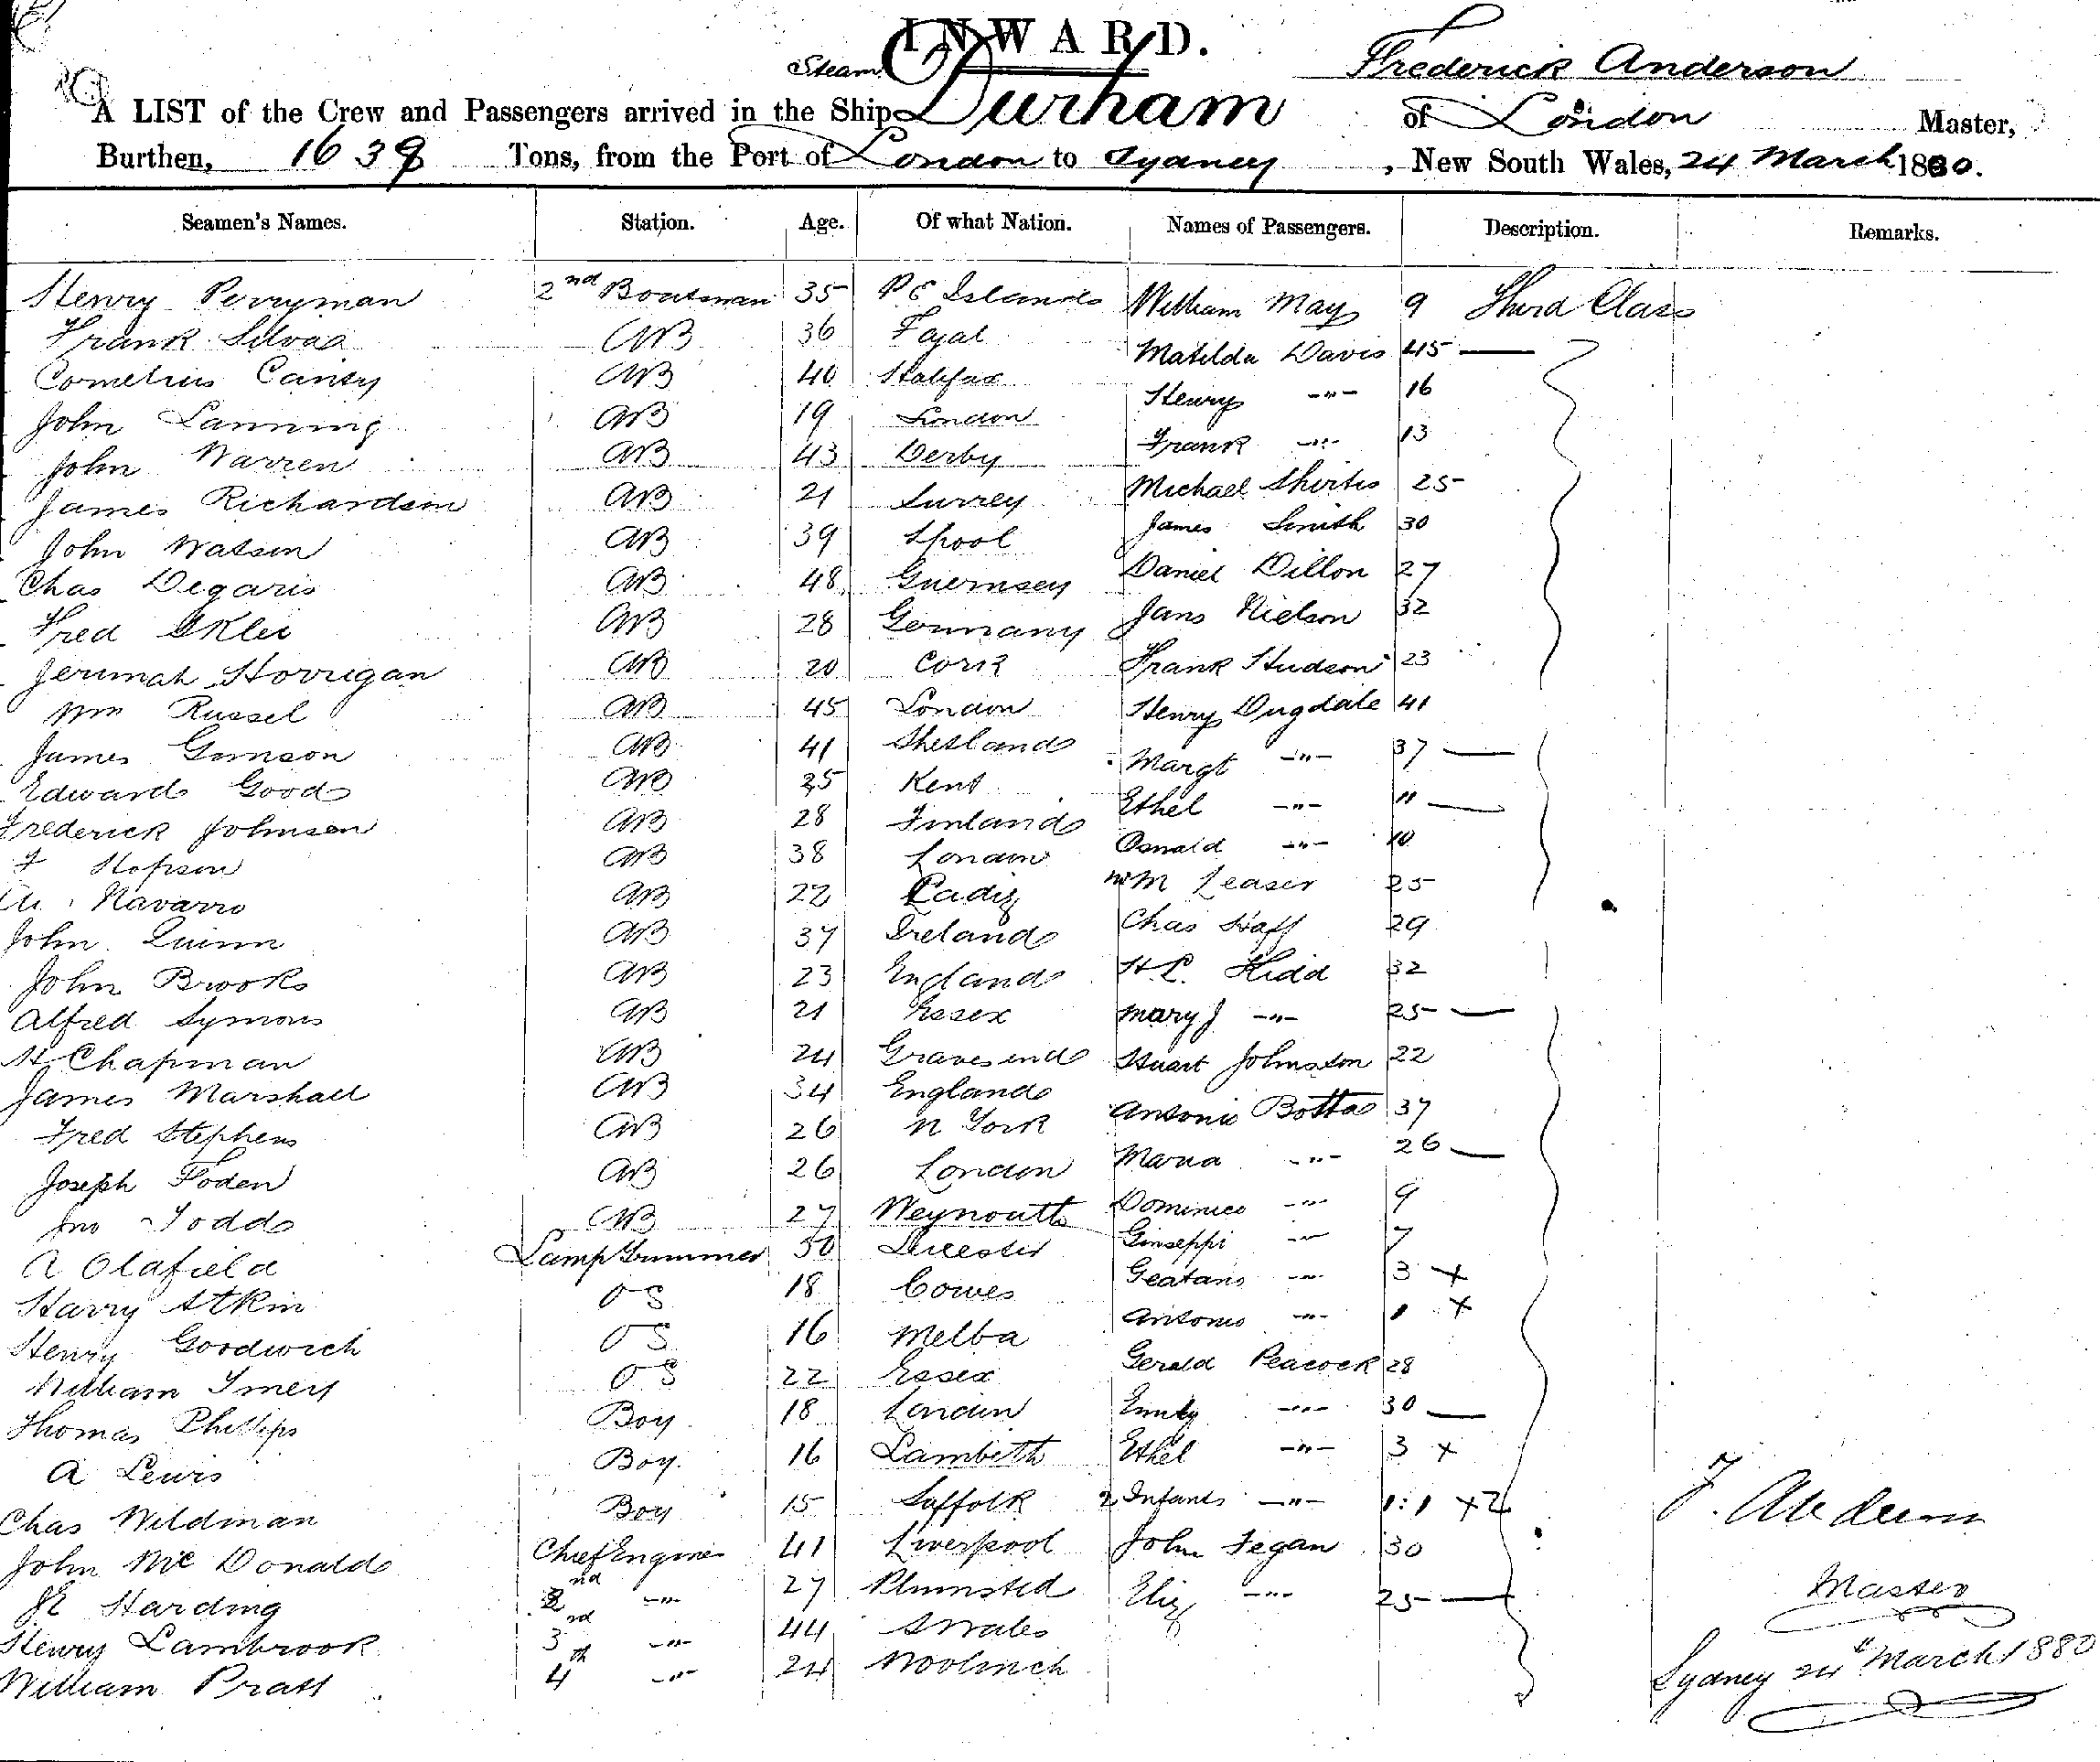 INWARD.
Steam Frederick Anderson
A LIST of the Crew and Passengers arrived in the Ship Durham of London Master,
Burthen, 1639 Tons, from the Port of London to Sydney, New South Wales, 24 March 1880.
Seamen's Names. Station. Age. Of what Nation. Names of Passengers. Description. Remarks.
Henry Perryman 2nd Boatsman 35 P E Islands William May 9 Third Class
Frank Silva AB 36 Fayal Matilda Davis 45 —
Cornelius Canty AB 40 Halifax Henry -"- 16
John Lanning AB 19 London Frank -"- 13
John Warren AB 43 Derby Michael 25
James Richardson AB 21 Surrey James Smith 30
John Watson AB 39 Lpool Daniel Dillon 27
Chas Degaris AB 48 Guernsey Jans Nielson 32
Fred AB 28 Germany Frank Hudson 23
Jerimah Horrigan AB 20 Cork Henry Dugdale 41
Wm Russel AB 45 London Margt -"- 37 —
James Gunson AB 41 Shetland Ethel -"- 11 —
Edward Good AB 25 Kent Osnald -"- 10
Frederick Johnson AB 28 Finland Wm Leaser 25
F Hopson AB 38 London Chas 29
Navarro AB 22 Cadiz H L Kidd 32
John Quinn AB 37 Ireland Mary J -"- 25 —
John Brooks AB 23 England Stuart Johnston 22
Alfred Symons AB 21 Essex Antonio Botta 37
H Chapman AB 24 Gravesend Maria -"- 26 —
James Marshall AB 34 England Dominico -"- 9
Fred Stephens AB 26 N York Giuseppi -"- 7
Joseph Foden AB 26 London Geatano -"- 3 x
Jno Todd AB 27 Weymouth Antonio -"- 1 x
A Oldfield Lamp Trimmer 50 Leicester Gerald Peacock 28
Harry Atkin OS 18 Cowes Emily -"- 30 —
Henry Goodwich OS 16 Melba Ethel -"- 3 x
William OS 22 Essex 2 Infants -"- 1:1 x2
Thomas Phillips Boy 18 London John Fegan 30
A Lewis Boy 16 Lambeth Eliz -"- 25 —
Chas Wildman Boy 15 Suffolk
John McDonald Chief Engineer 41 Liverpool
Harding 2nd -"- 27 Plumsted
Henry Lambrook 3rd -"- 44 S Wales
William Pratt 4th -"- 24 Woolwich
F. Anderson
Master
Sydney 24th March 1880